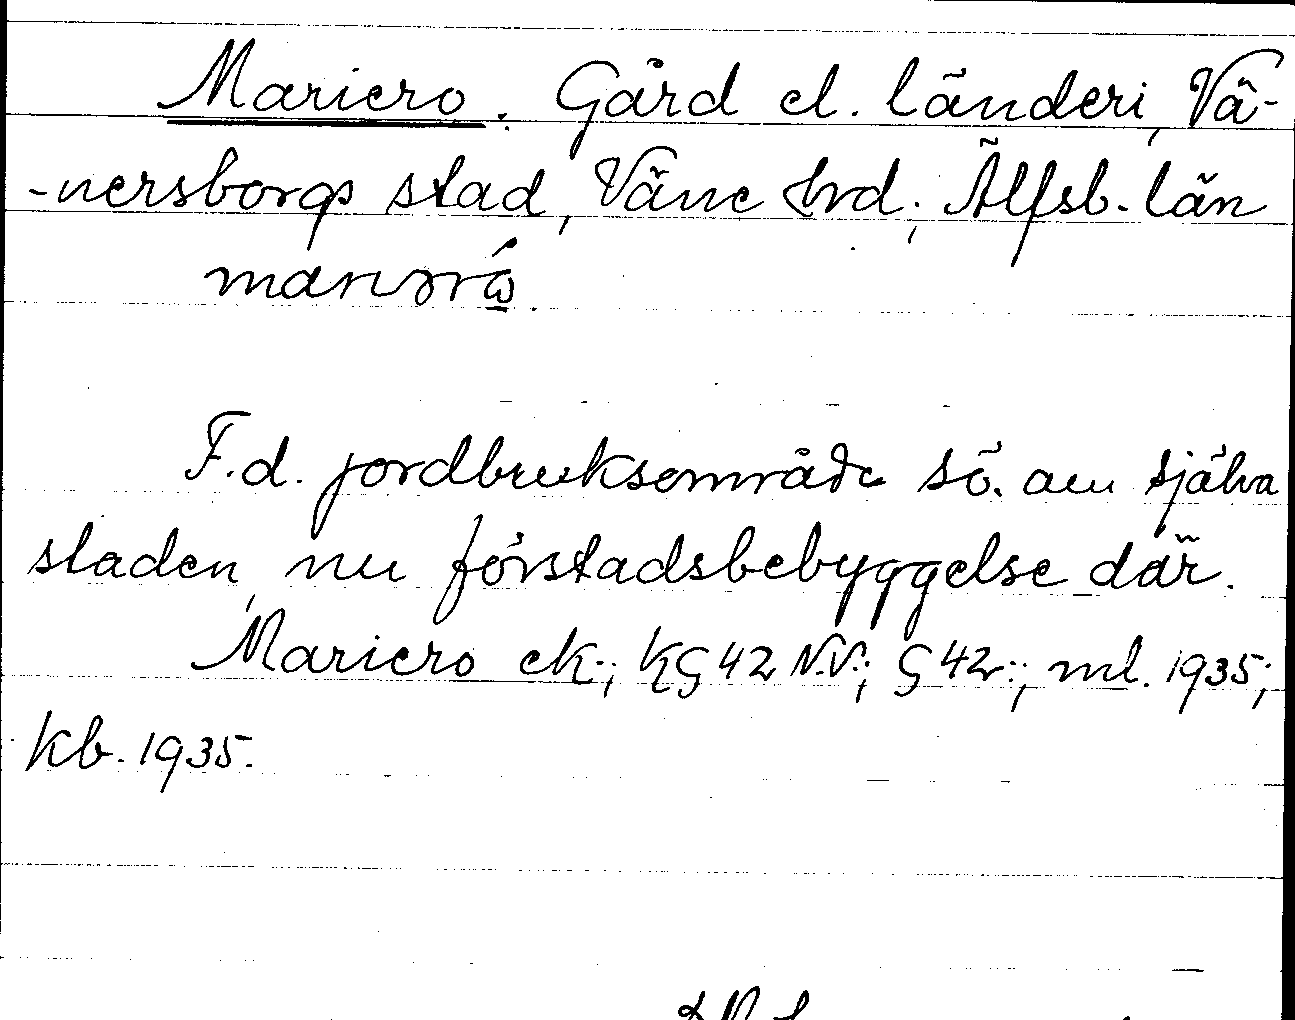 Mariero. Gård el. länderi, Vä-
-nersborgs stad, Väne hrd; Älfsb. län
F.d. jordbruksområde sö. om själva
staden, nu förstadsbebyggelse där.
Mariero ek.; KG 42 N.V.; G 42:, ml. 1935;
kb. 1935.